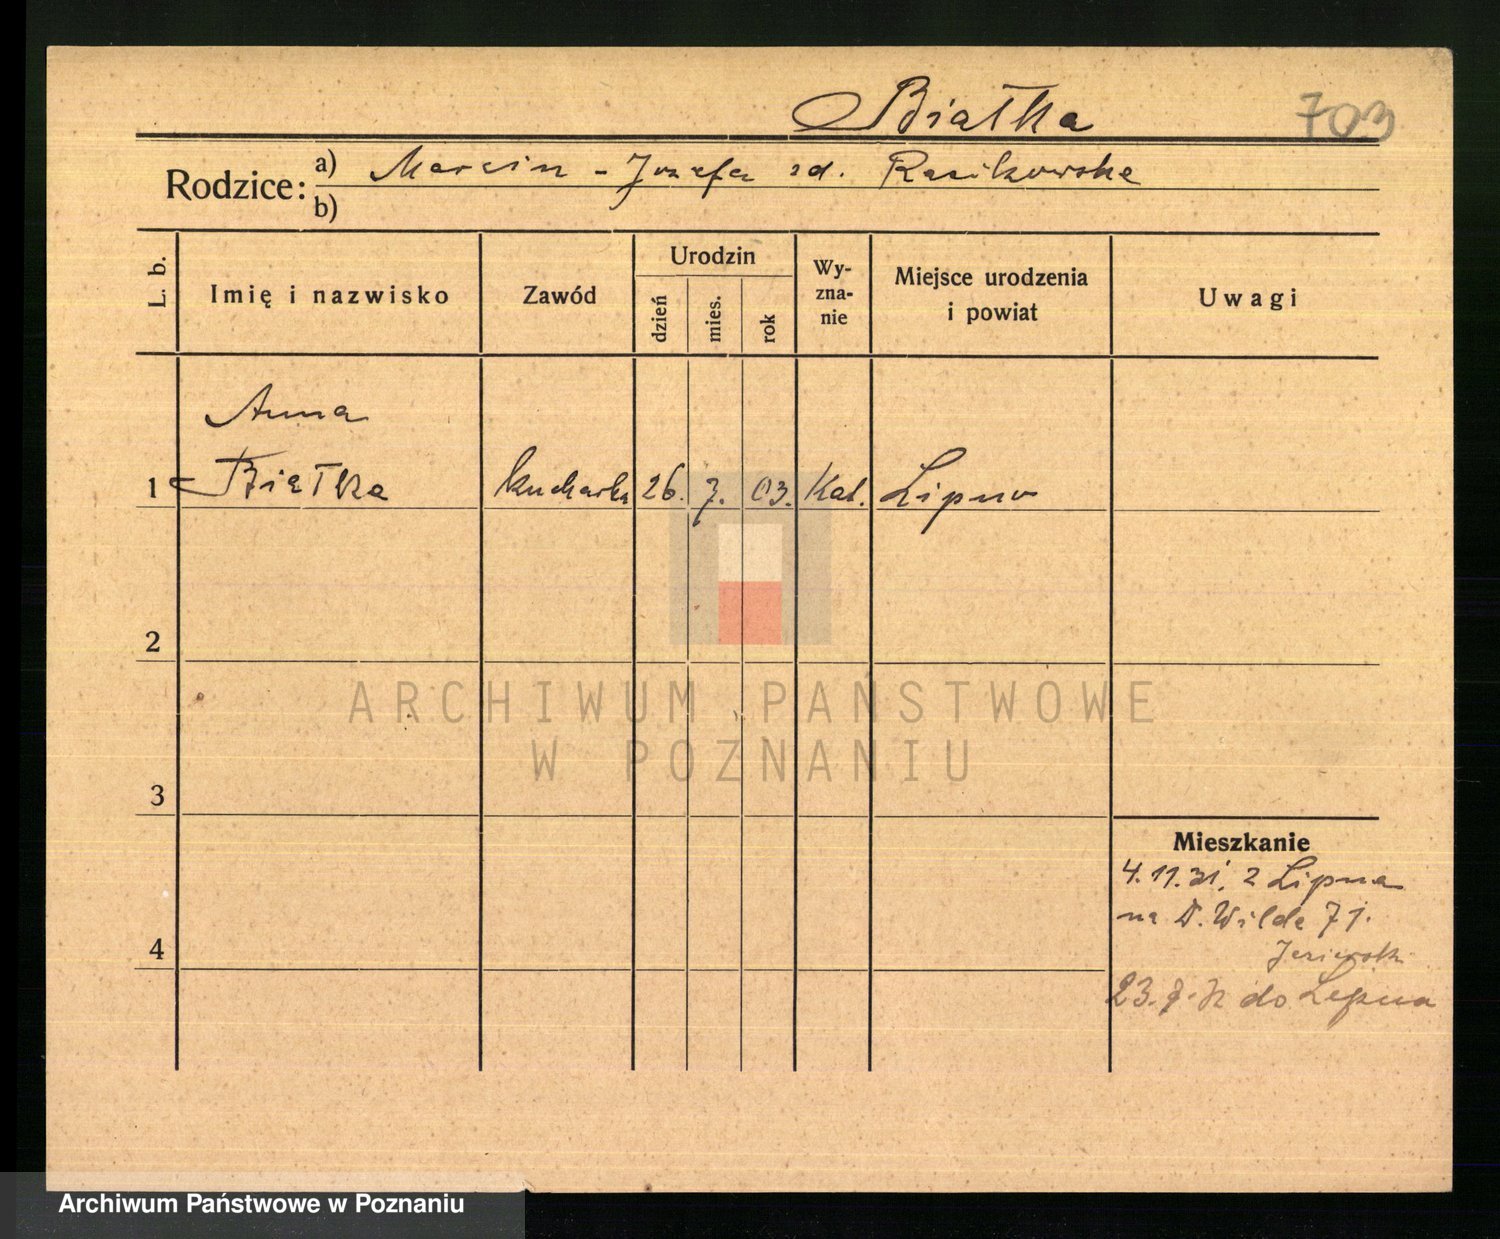 Białka
703
Rodzice: a) Marcin - Józefa zd. Rosikowska
b)
L. b.
Imię i nazwisko
Zawód
Urodzin
dzień
mies.
rok
Wy-
zna-
nie
Miejsce urodzenia
i powiat
Uwagi
Anna
1 Białka kucharka 26. 7. 03. Kat. Lipno
2
ARCHIWUM PAŃSTWOWE
W POZNANIU
3
Mieszkanie
4.11.31. z Lipna
na D. Wilda 71.
4
23. do Lipna
Archiwum Państwowe w Poznaniu